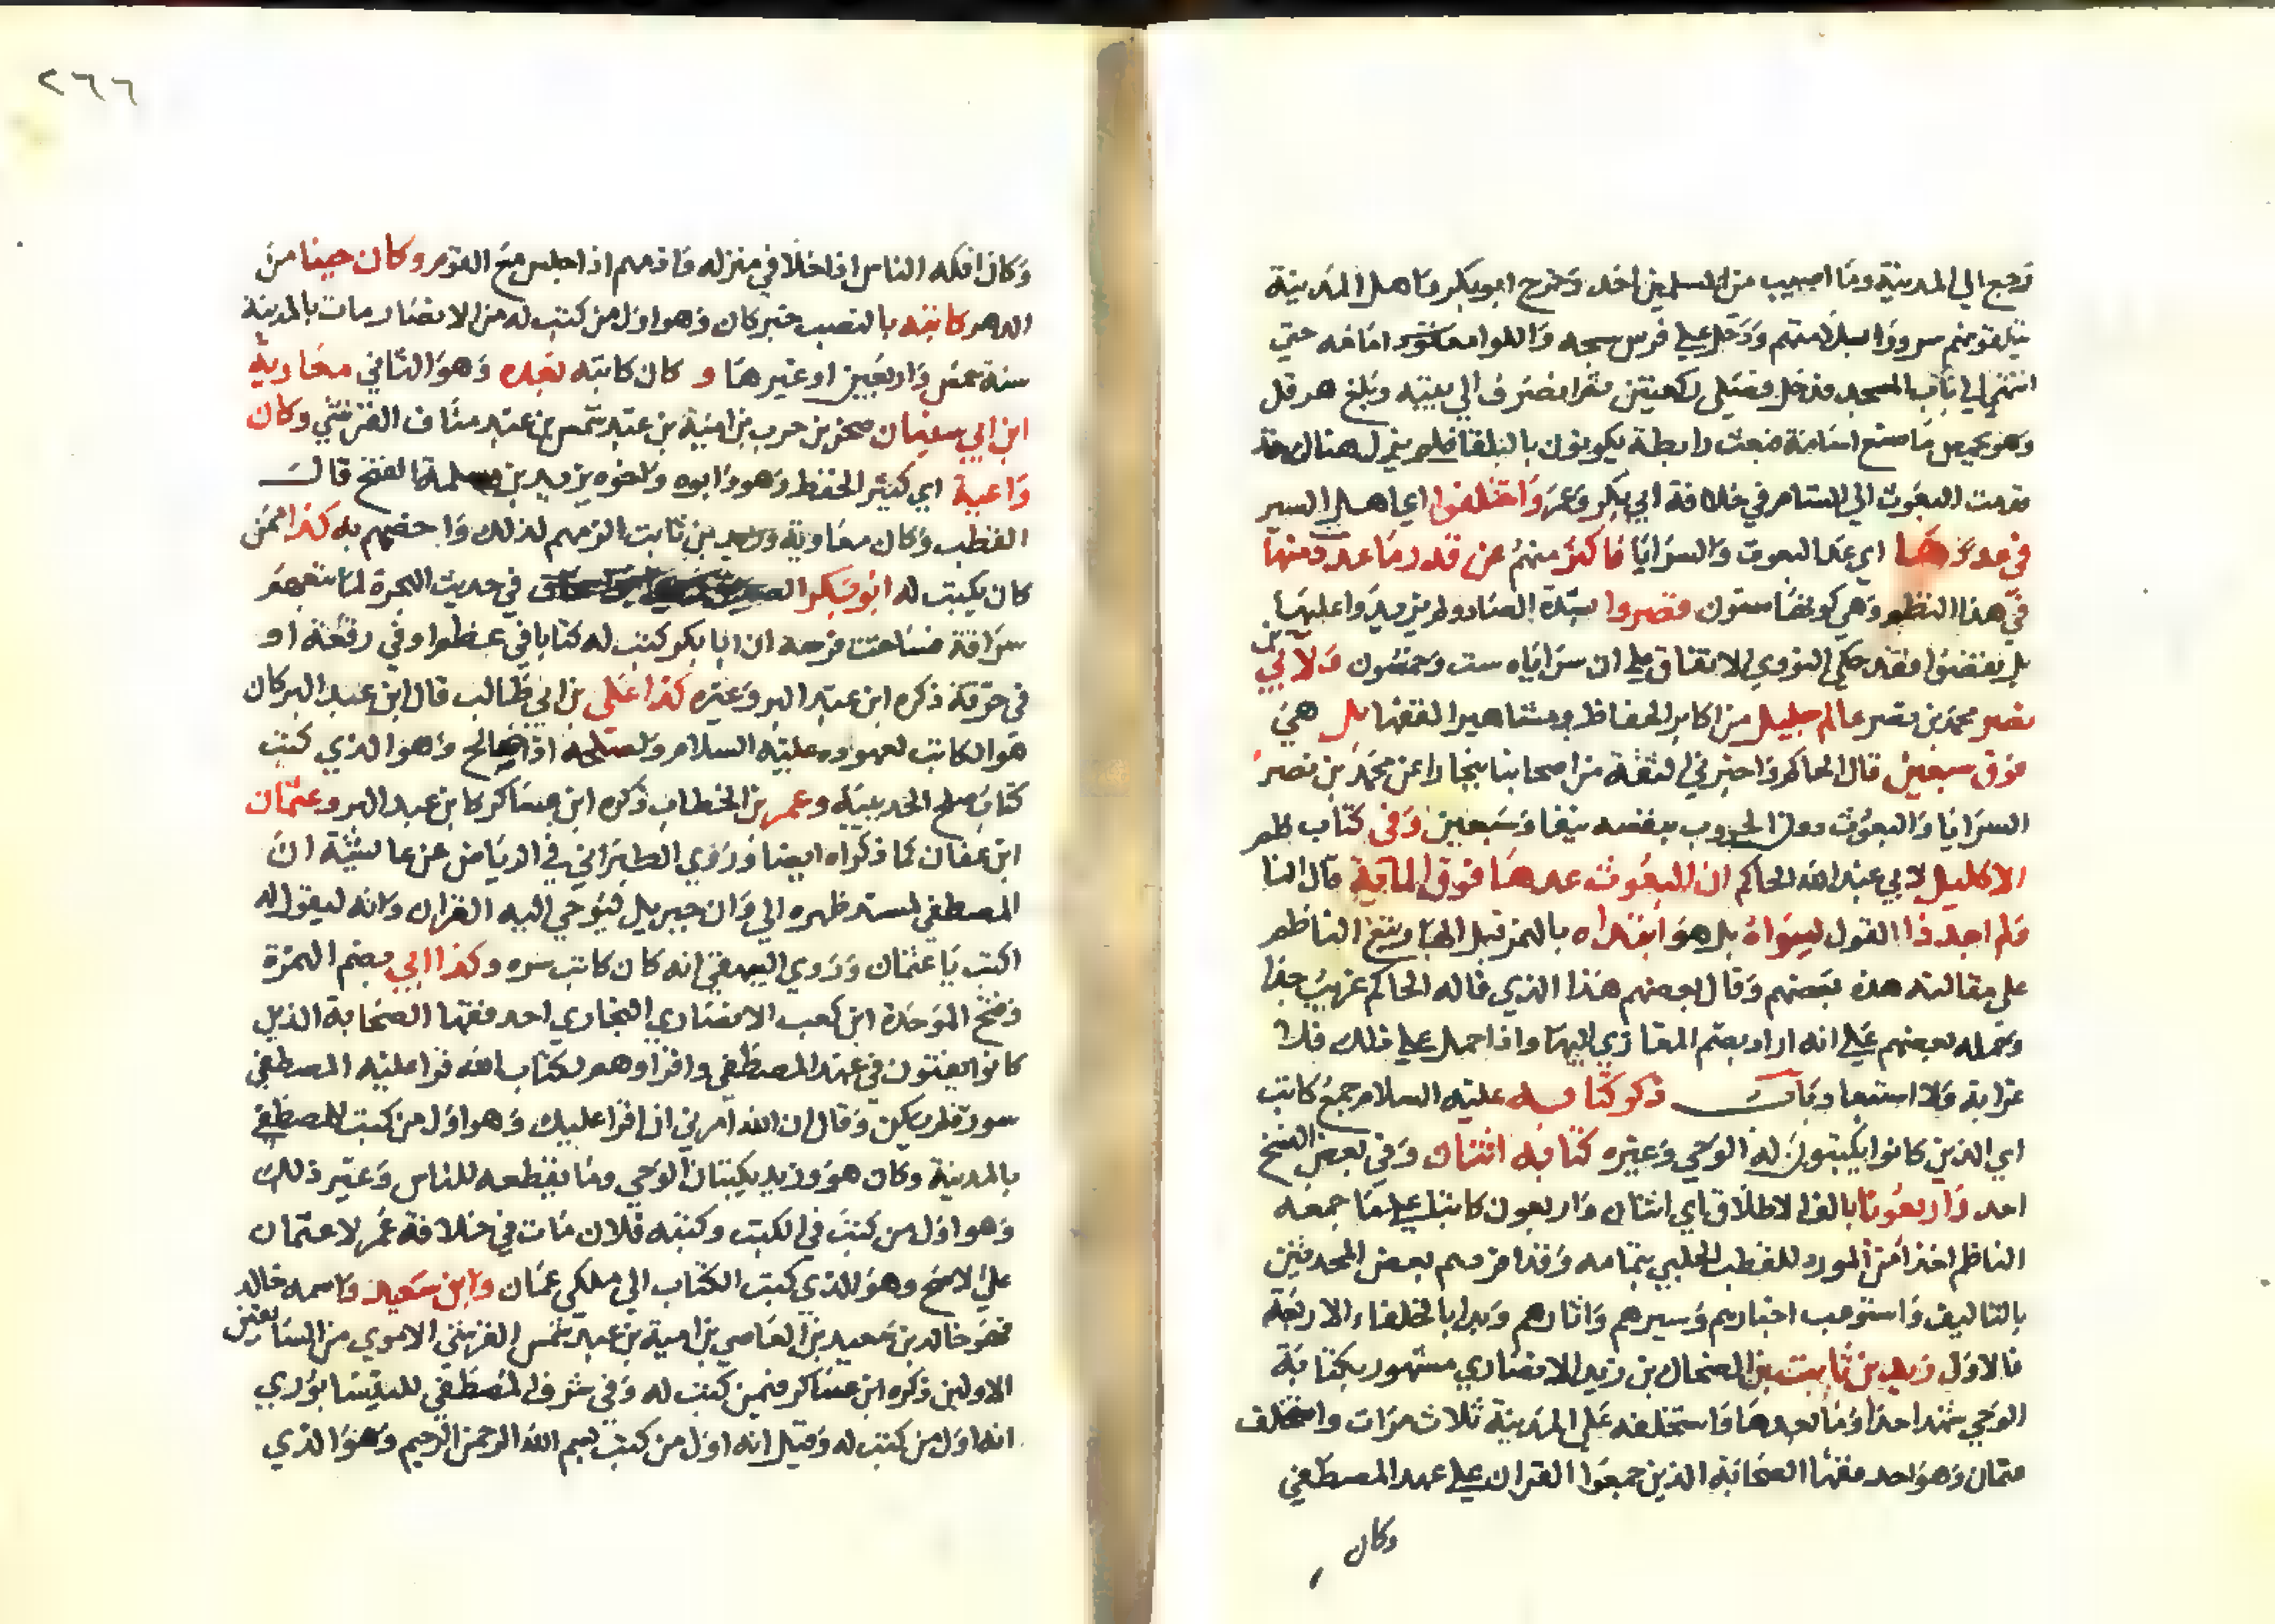 رجع الي المدينة وما اصيب من المسلمين احد وخرج ابو بكر واهل المدينة
يتلقونهم سرورا بسلامتهم ودخل علي فرس سبحه واللوا معقود امامه حتي
انتهي الي باب المسجد فدخل فصلي ركعتين ثم انصرف الي بيته وبلغ هرقل
وهو بحمص ما صنع اسامة فبعث رابطة يكونون بالبلقا فلم يزل هناك حتي
قدمت البعوث الي الشام في خلافة ابي بكر وعمر واختلفوا اي اهل السير
في عدّها اي عد البعوث والسرايا فاكثر منهم عن قدر ما عد منها
في هذا النظم وهي كونها ستون قصروا بشدة الصاد ولم يزيدوا عليها
بل نقصوا فقد حكي النووي الاتفاق علي ان سراياه ست وخمسون ولابي
نصر محمد بن نصر عالم جليل من اكابر الحفاظ ومشاهير الفقها بل هي
فوق سبعين قال الحاكم واخبرني الثقة من اصحابنا ببخارا عن محمد بن نصر
السرايا والبعوث دون الحروب بنفسه نيفا وسبعين وفي كتاب لهم
الاكليل لابي عبد الله الحاكم ان البعوث عدها فوق الماية قال النا
ولم اجد ذا القول لسواه بل هو ابتداه بالهمز قبل الها وتبع الناظم
علي مقالته هذه بعضهم وقال بعضهم هذا الذي قاله الحاكم غريب جدا
وحمله بعضهم علي انه اراد بضم المغازي اليها واذا حمل علي ذلك فلا
غرابة ولا استبعاد باب ذكر كتابه عليه السلام جمع كاتب
اي الذين كانوا يكتبون له الوحي وغيره كتابه اثنان وفي بعض النسخ
احد واربعونا بالف الاطلاق اي اثنان واربعون كاتبا علي ما جمعه
الناظم اخذا من المورد للقطب الحلبي بتمامه وقد افردهم بعض المحدثين
بالتاليف واستوعب اخبارهم وسيرهم واثارهم وبدا بالخلفاء الاربعة
فالاول زيد بن ثابت بن الضحاك بن زيد الانصاري مشهور بكتابة
الوحي شهد احدا وما بعدها واستخلفه علي المدينة ثلاث مرات واستخلف
عثمان وهو احد فقها الصحابة الذين جمعوا القران علي عهد المصطفي
وكان
٢٦٦
وكان افكه الناس اذا خلا في منزله واذمهم اذا جلس مع القوم وكان حينا من
الدهر كاتبه بالنصب خبر كان وهو اول من كتب له من الانصار مات بالمدينة
سنة خمس واربعين او غيرها و كان كاتبه بعده وهو الثاني معاوية
ابن ابي سفيان صخر بن حرب بن امية بن عبد شمس بن عبد مناف القرشي وكان
واعية اي كثير الحفظ وهو وابوه واخوه يزيد بن مسلمة الفتح قال
القطب وكان معاوية وزيد بن ثابت الزمهم لذلك واخصهم به كذا ممن
كان يكتب له ابو بكر الصديق في حديث الهجرة لما تبعهم
سراقة فساخت فرسه ان ابا بكر كتب له كتابا في عظم او في رقعة او
في خرقة ذكره ابن عبد البر وغيره كذا علي بن ابي طالب قال ابن عبد البر كان
هو الكاتب لعهوده عليه السلام ولصلحه اذا صالح وهو الذي كتب
كتاب صلح الحديبية وعمر بن الخطاب ذكره ابن عساكر كابن عبد البر وعثمان
ابن عفان كما ذكراه ايضا وروي الطبراني في الرياض عن عائشة ان
المصطفي لمسند ظهره الي وان جبريل ليوحي اليه القران وانه ليقول له
اكتب يا عثمان وروي البيهقي انه كان كاتب سره وكذا ابي بضم الهمزة
وفتح الموحدة ابن كعب الانصاري النجاري احد فقها الصحابة الذين
كانوا يفتون في عهد المصطفي واقراوهم لكتاب الله قرا عليه المصطفي
سورة لم يكن وقال ان الله امرني ان اقرا عليك وهو اول من كتب للمصطفي
بالمدينة وكان هو وزيد يكتبان الوحي وما يقطعه للناس وغير ذلك
وهو اول من كتب في الكتب وكتبه فلان مات في خلافة عمر لا عثمان
علي الاصح وهو الذي كتب الكتاب الي ملكي عمان وابن سعيد واسمه خالد
فهو خالد بن سعيد بن العاصي بن امية بن عبد شمس القرشي الاموي من السابقين
الاولين ذكره ابن عساكر فيمن كتب له وفي شرف المصطفي للنيسابوري
انه اول من كتب له وقيل انه اول من كتب بسم الله الرحمن الرحيم وهو الذي